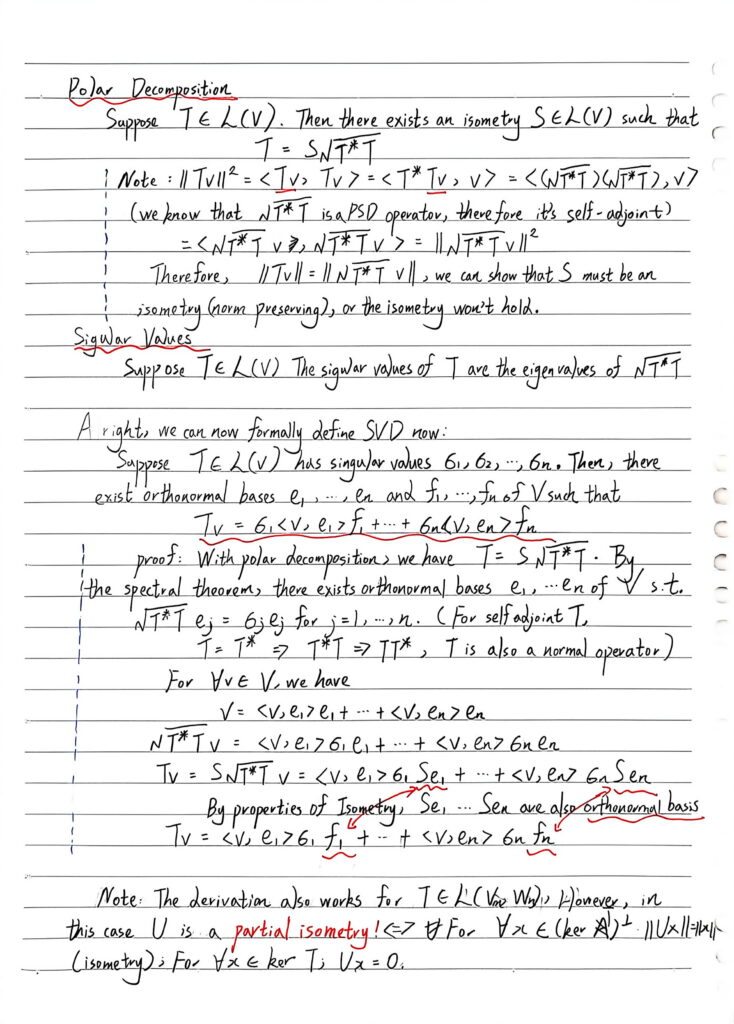 Polar Decomposition
Suppose T ∈ L(V). Then there exists an isometry S ∈ L(V) such that
T = S√T*T
Note: ||Tv||² = <Tv, Tv> = <T*Tv, v> = <(√T*T)(√T*T), v>
(we know that √T*T is a PSD operator, therefore it's self-adjoint)
= <√T*T v, √T*T v> = ||√T*T v||²
Therefore, ||Tv|| = ||√T*T v||, we can show that S must be an
isometry (norm preserving), or the isometry won't hold.
Sigular Values
Suppose T ∈ L(V) The sigular values of T are the eigenvalues of √T*T
A right, we can now formally define SVD now:
Suppose T ∈ L(V) has singular values σ₁, σ₂, ..., σn. Then, there
exist orthonormal bases e₁, ..., en and f₁, ..., fn of V such that
Tv = σ₁<v, e₁>f₁ + ... + σn<v, en>fn
proof: With polar decomposition, we have T = S√T*T. By
the spectral theorem, there exists orthonormal bases e₁, ... en of V s.t.
√T*T ej = σj ej for j = 1, ..., n. (For self adjoint T,
T = T* => T*T => TT*, T is also a normal operator)
For ∀v ∈ V, we have
v = <v, e₁>e₁ + ... + <v, en>en
√T*T v = <v, e₁>σ₁e₁ + ... + <v, en>σn en
Tv = S√T*T v = <v, e₁>σ₁ Se₁ + ... + <v, en>σn Sen
By properties of Isometry, Se₁ ... Sen are also orthonormal basis
Tv = <v, e₁>σ₁ f₁ + ... + <v, en>σn fn
Note: The derivation also works for T ∈ L(V, W), However, in
this case U is a partial isometry! <=> For ∀x ∈ (ker A)⊥ ||Ux||=||x||
(isometry); For ∀x ∈ ker T, Ux = 0.